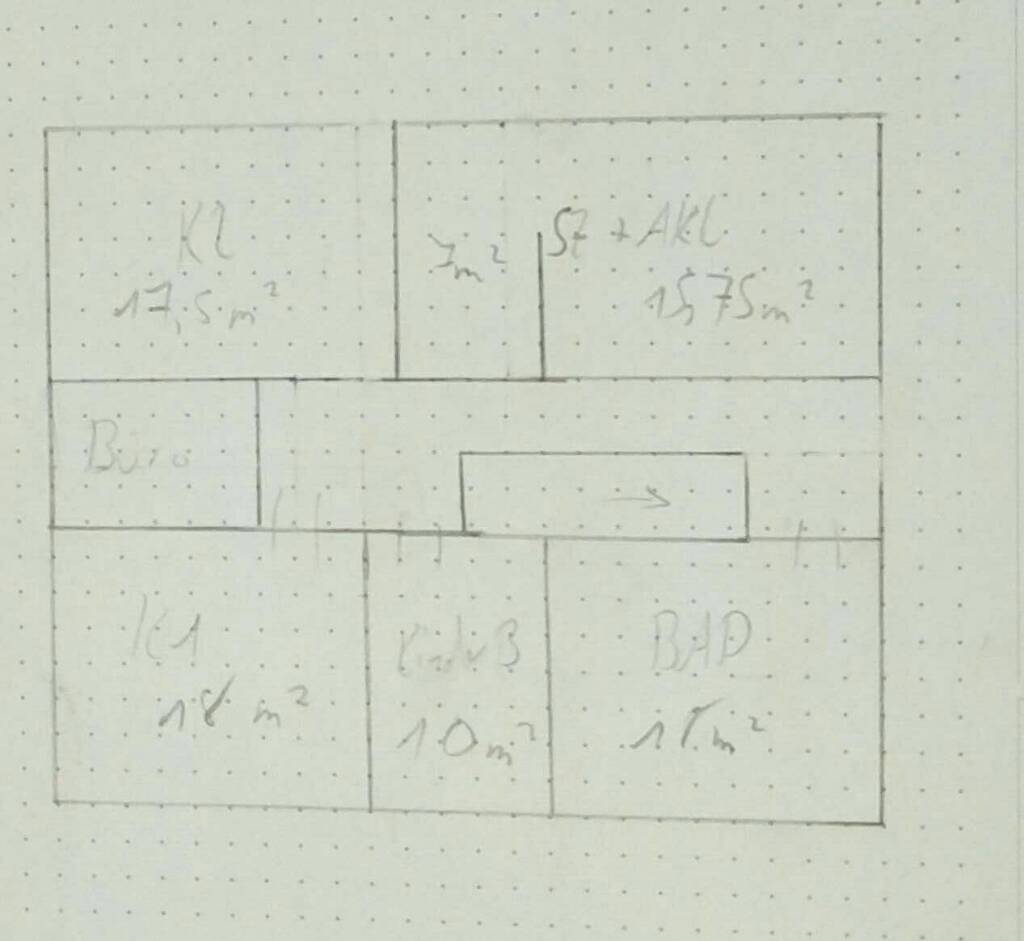 K2
17,5 m²
7m²
SZ + AKL
15,75m²
Büro
K1
18 m²
10m²
BAD
m²